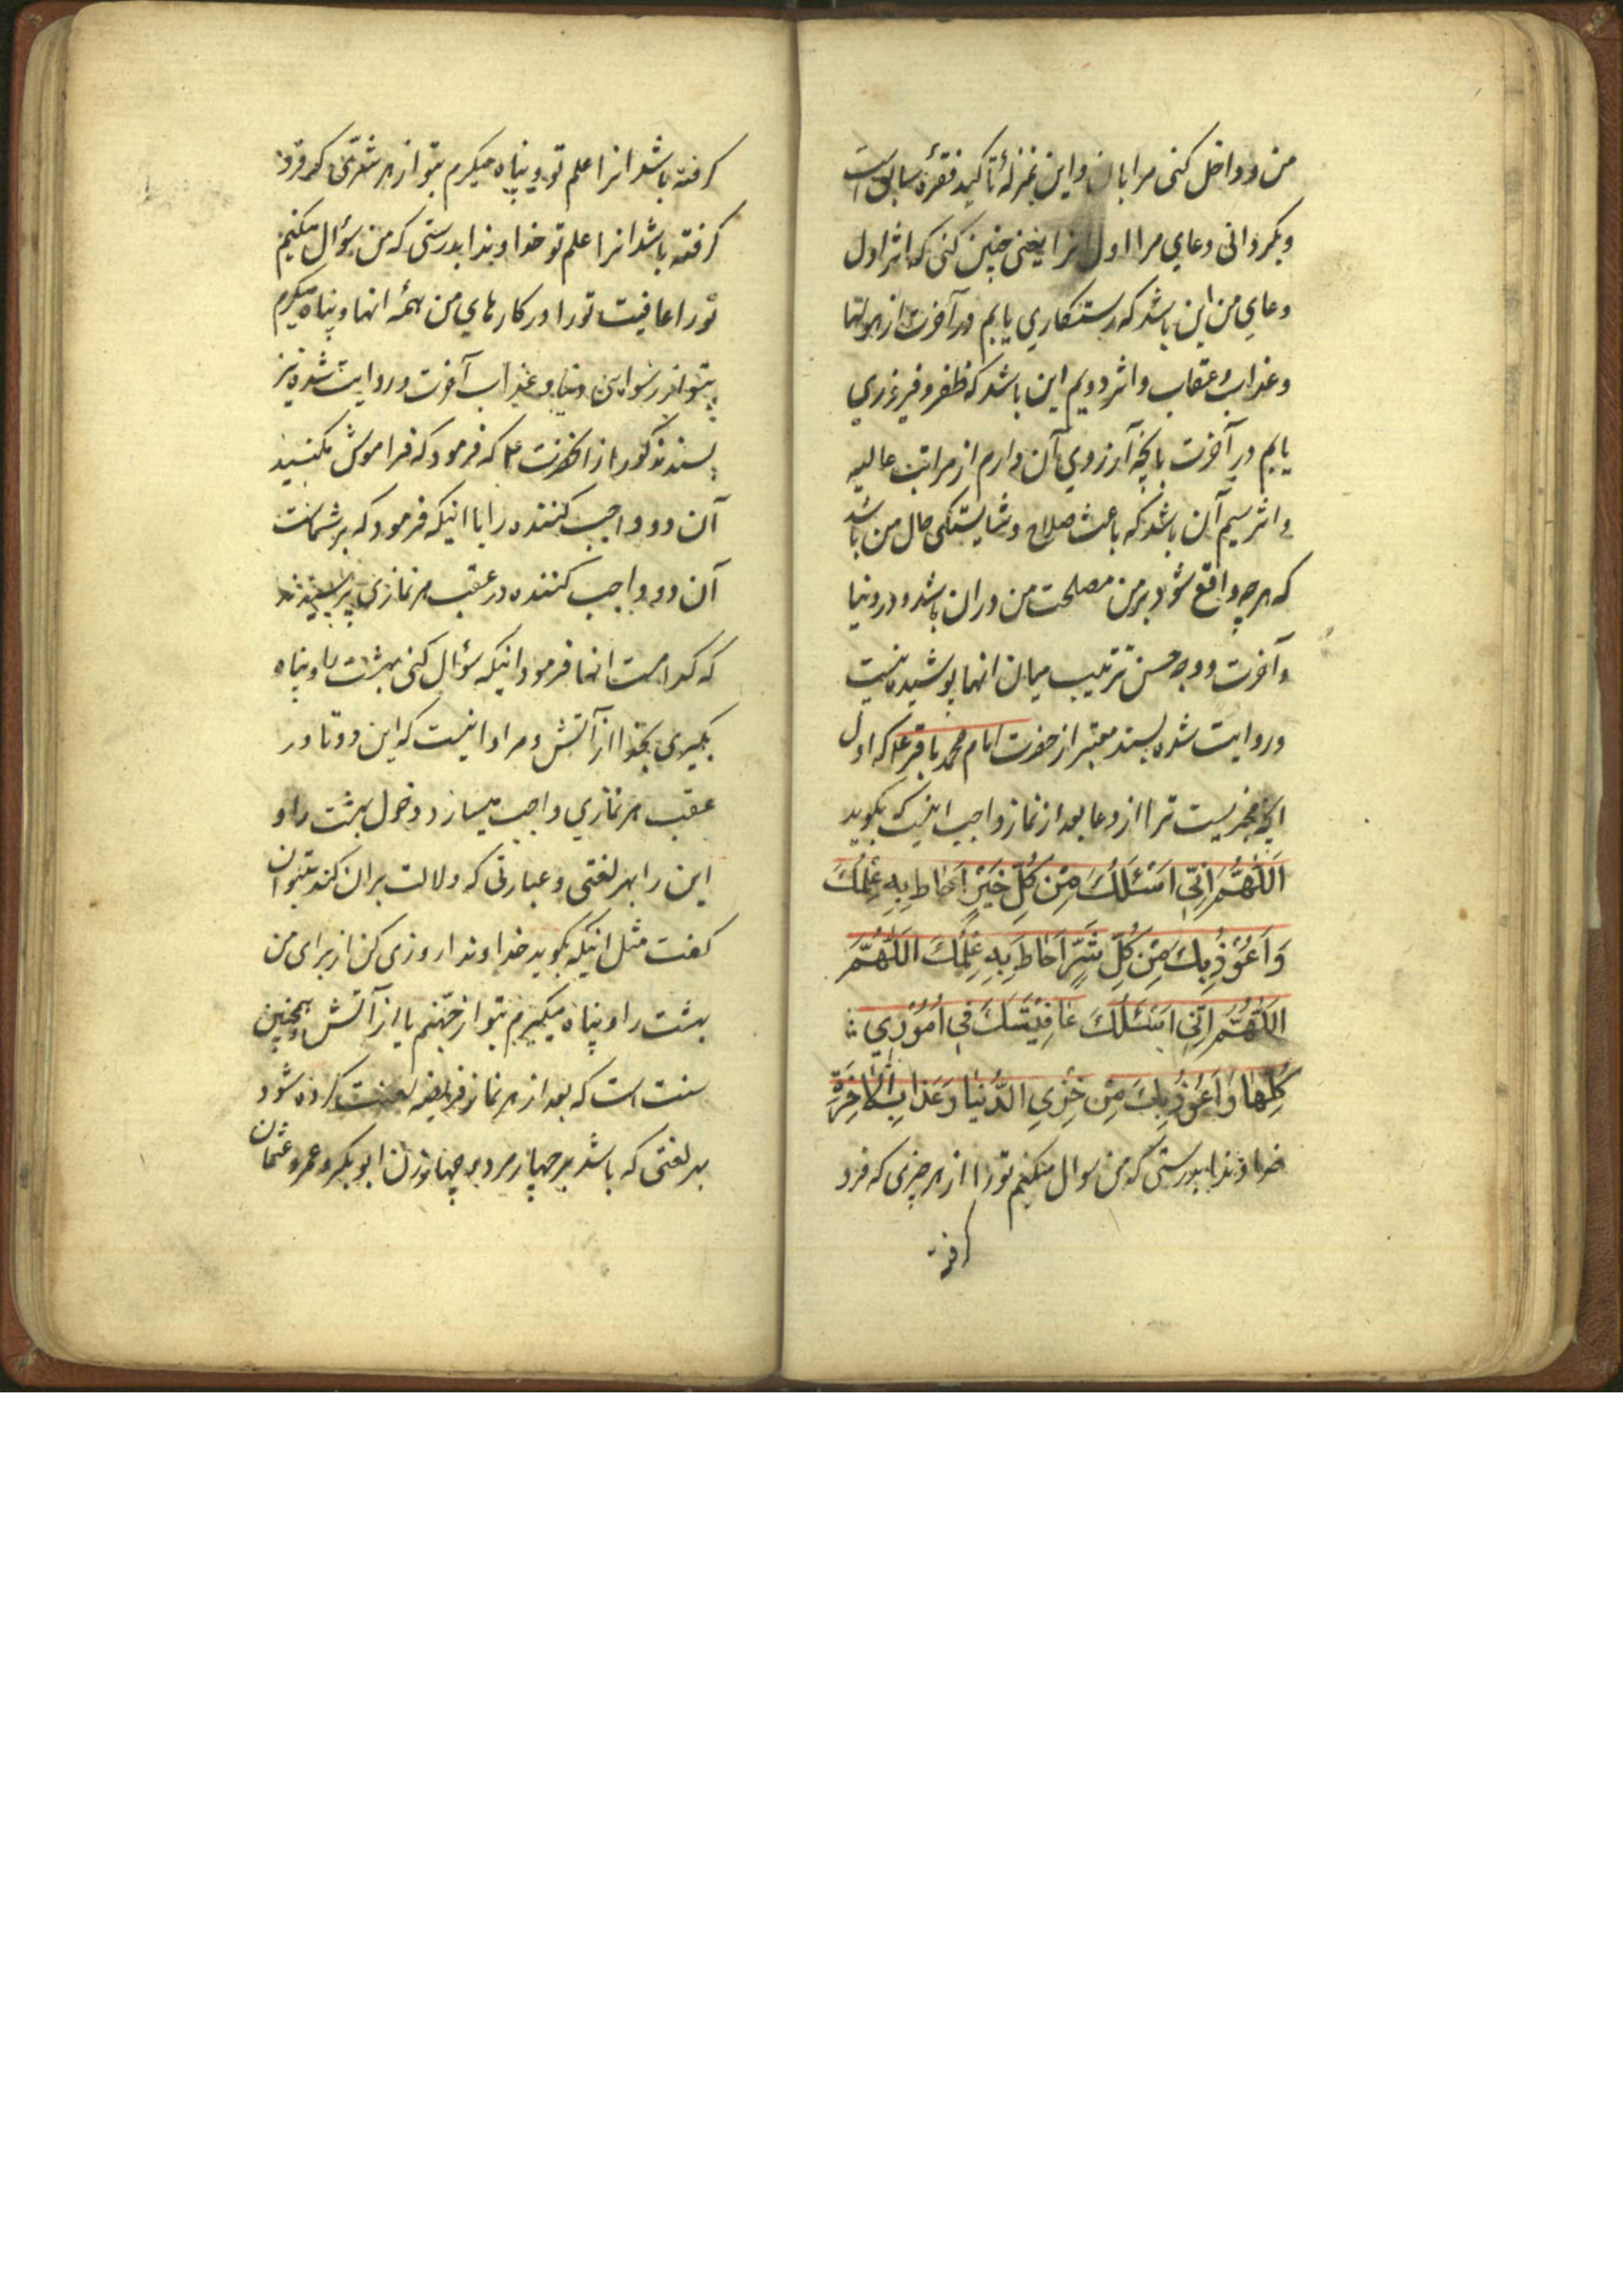 من و داخل کنی مرا بان و این بمنزلهٔ تأکید فقرهٔ سابق است
و بکردانی دعای مرا اول انرا یعنی چنین کنی که اثر اول
دعای من این باشد که رستکاری یابم در آخرت از هولها
و عذاب و عقاب و اثر دویم این باشد که ظفر و فیروزی
یابم در آخرت بانچه آرزوی آن دارم از مراتب عالیه
و اثر سیم آن باشد که باعث صلاح و شایستکی حال من باشد
که هر چه واقع شود بر من مصلحت من در ان باشد و در دنیا
و آخرت و وجه حسن ترتیب میان انها پوشیده نیست
و روایت شده بسند معتبر از حضرت امام محمد باقر ع که اول
انچه مجزیست ترا از دعا بعد از نماز واجب اینست که بکوید
اَللّٰهُمَّ اِنّی اَسْئَلُكَ مِنْ كُلِّ خَيْرٍ اَحٰاطَ بِهِ عِلْمُكَ
وَ اَعُوْذُ بِكَ مِنْ كُلِّ شَرٍّ اَحٰاطَ بِهِ عِلْمُكَ اَللّٰهُمَّ
اَللّٰهُمَّ اِنّی اَسْئَلُكَ عٰافِيَتَكَ فی اُمُوْرِي
كُلِّهٰا وَ اَعُوْذُ بِكَ مِنْ خِزْيِ الدُّنْيٰا وَ عَذٰابِ الْاٰخِرَةِ
خداوندا بدرستی که من سوال میکنم تو را از هر چیزی که فرو
کرفته
کرفته باشد انرا علم تو و پناه میکرم بتو از هر شرّی که فرو
کرفته باشد انرا علم تو خداوندا بدرستی که من سؤال میکنم
تو را عافیت تو را در کارهای من همهٔ انها و پناه میکرم
بتو از رسوایی دنیا و عذاب آخرت و روایت شده نیز
بسند مذکور از انحضرت ع که فرمود که فراموش مکنید
آن دو واجب کننده را یا اینکه فرمود که بر شماست
آن دو واجب کننده در عقب هر نمازی پرسیدند
که کدامست انها فرمود اینکه سؤال کنی بهشت را و پناه
بگیری بخدا از آتش و مراد اینست که این دو تا در
عقب هر نمازی واجب میسازد دخول بهشت را و
این را بهر لغتی و عبارتی که دلالت بران کند میتوان
کفت مثل اینکه بکوید خداوندا روزی کن از برای من
بهشت را و پناه میکیرم بتو از جهنم یا از آتش و همچنین
سنت است که بعد از هر نماز فریضه لعنت کرده شود
بهر لغتی که باشد بر چهار مرد و چهار زن ابوبکر و عمر و عثمان